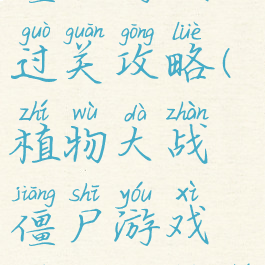 guò guān gōng lüè
过关攻略(
zhí wù dà zhàn
植物大战
jiāng shī yóu xì
僵尸游戏